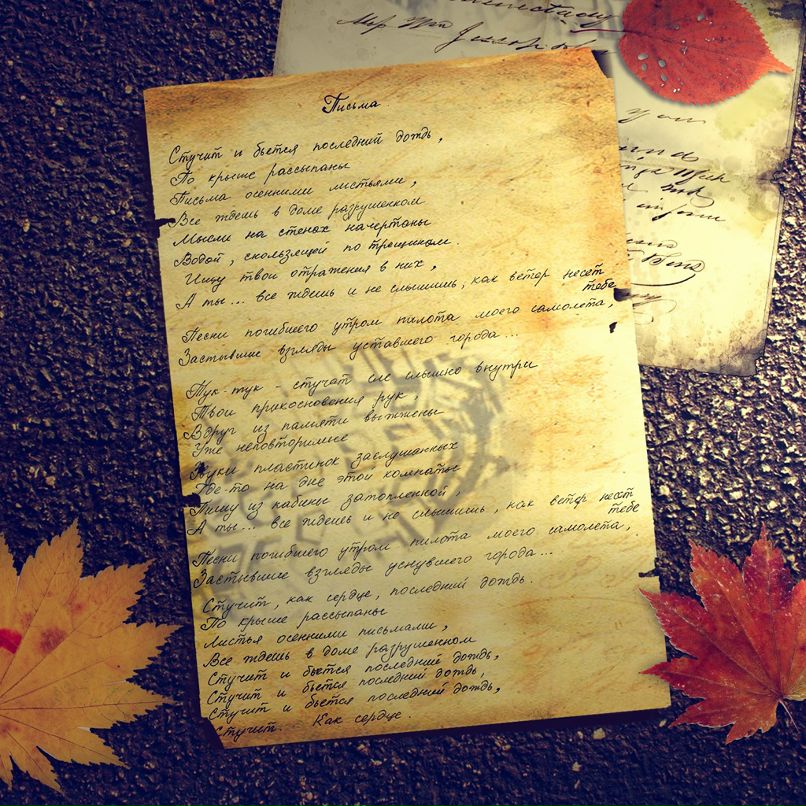 Письма.
Стучит и бьется последний дождь,
По крыше рассыпаны
Письма осенними листьями,
Все ждешь в доме разрушенном
Мысли на стенах начертаны
Водой, скользящей по трещинам.
Ищу твои отражения в них,
А ты... все ждешь и не слышишь, как ветер несет
тебе
Песни погибшего утром пилота моего самолета,
Застывшие взгляды уставшего города...
Тук-тук - стучат еле слышно внутри
Твои прикосновения рук,
Вдруг из памяти выжжены
Уже неповторимые
Звуки пластинок заслушанных
Где-то на дне этой комнаты
Пишу из кабины затопленной,
А ты... все ждешь и не слышишь, как ветер несет
тебе
Песни погибшего утром пилота моего самолета,
Застывшие взгляды уснувшего города...
Стучит, как сердце, последний дождь.
По крыше рассыпаны
Листья осенними письмами,
Все ждешь в доме разрушенном
Стучит и бьется последний дождь,
Стучит и бьется последний дождь,
Стучит и бьется последний дождь,
Стучит. Как сердце.